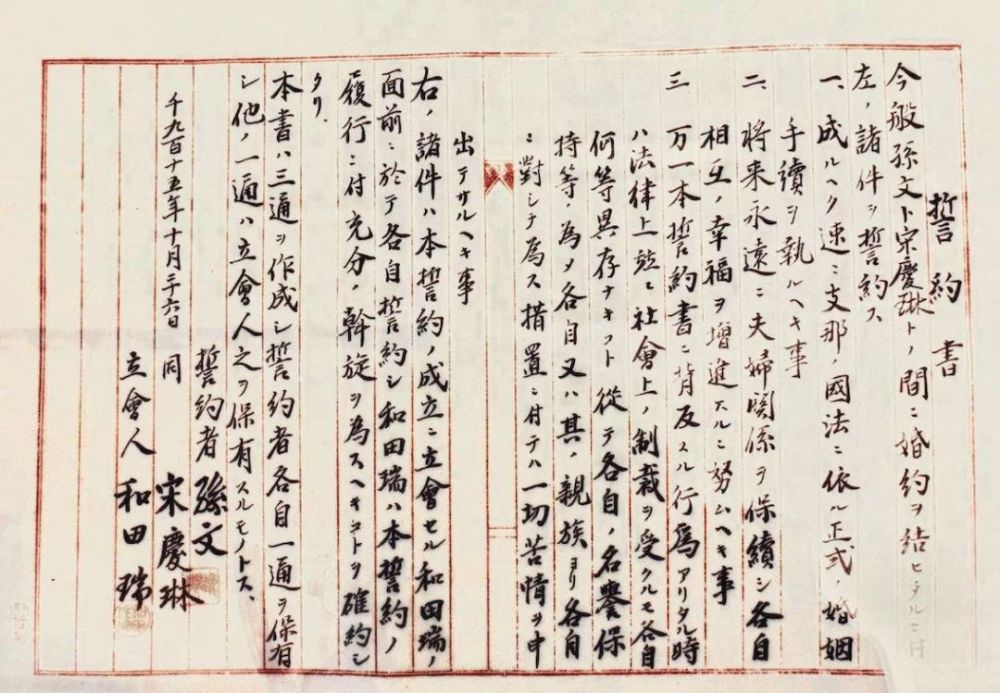 誓約書
今般孫文ト宋慶琳トノ間ニ婚約ヲ結ヒタルニ付
左ノ諸件ヲ誓約ス
一、成ルヘク速ニ支那ノ國法ニ依ル正式ノ婚姻
手續ヲ執ルヘキ事
二、将来永遠ニ夫婦関係ヲ保續シ各自
相互ノ幸福ヲ増進スルニ努ムヘキ事
三 万一本誓約書ニ背反スル行為アリタル時
ハ法律上並ニ社會上ノ制裁ヲ受クルモ各自
何等異存ナキコト 従テ各自ノ名譽保
持等ノ為メ各自又ハ其ノ親族ヨリ各自
ニ對シテ為ス措置ニ付テハ一切苦情ヲ申
出テサルヘキ事
右ノ諸件ハ本誓約ノ成立ニ立會セル和田瑞ノ
面前ニ於テ各自誓約シ和田瑞ハ本誓約ノ
履行ニ付充分ノ斡旋ヲ為スヘキコトヲ確約シ
タリ、
本書ハ三通ヲ作成シ誓約者各自一通ヲ保有
シ他ノ一通ハ立會人之ヲ保有スルモノトス、
千九百十五年十月二十六日
誓約者 孫文
同 宋慶琳
立會人 和田瑞